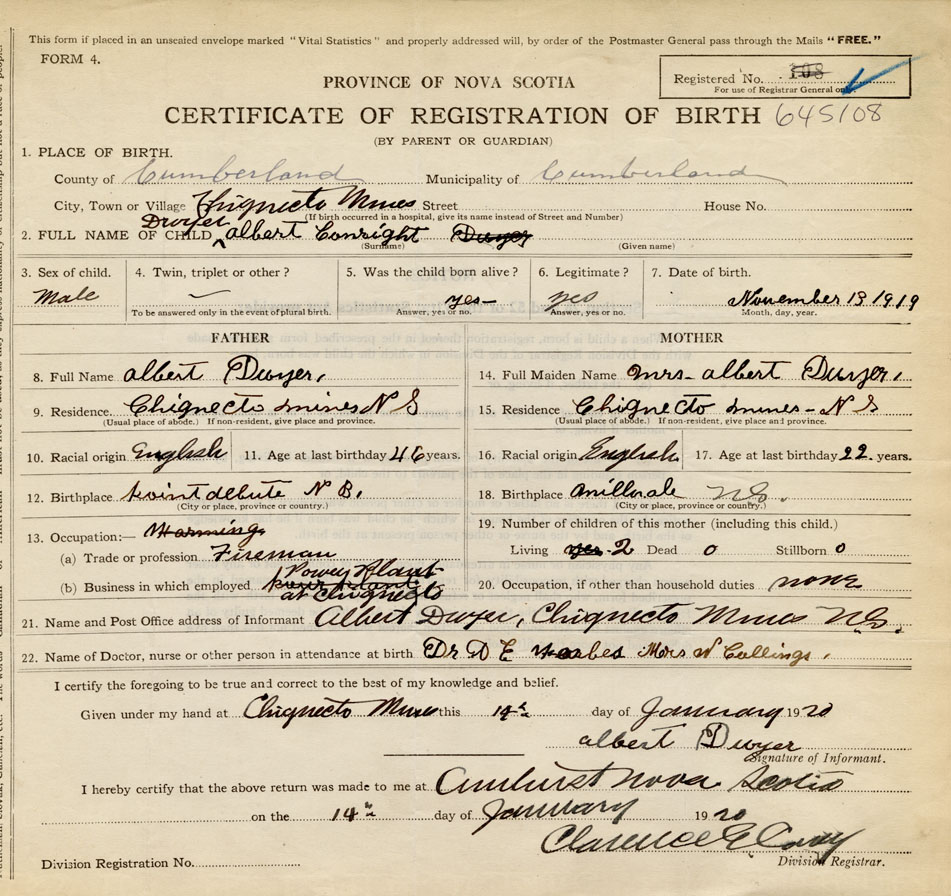 This form if placed in an unsealed envelope marked "Vital Statistics" and properly addressed will, by order of the Postmaster General pass through the Mails "FREE."
FORM 4.
Registered No. 108
For use of Registrar General only.
PROVINCE OF NOVA SCOTIA
CERTIFICATE OF REGISTRATION OF BIRTH 645108
(BY PARENT OR GUARDIAN)
1. PLACE OF BIRTH.
County of Cumberland Municipality of Cumberland
City, Town or Village Chignecto Mines Street House No.
(If birth occurred in a hospital, give its name instead of Street and Number)
Dwyer
2. FULL NAME OF CHILD albert Conright Dwyer
(Surname) (Given name)
3. Sex of child. 4. Twin, triplet or other? 5. Was the child born alive? 6. Legitimate? 7. Date of birth.
Male — yes- yes November 13 1919
To be answered only in the event of plural birth. Answer, yes or no. Answer, yes or no. Month, day, year.
FATHER MOTHER
8. Full Name albert Dwyer. 14. Full Maiden Name mrs- albert Dwyer.
9. Residence. Chignecto mines N S 15. Residence Chignecto mines- N S
(Usual place of abode.) If non-resident, give place and province. (Usual place of abode.) If non-resident, give place and province.
10. Racial origin English 11. Age at last birthday 46 years. 16. Racial origin English. 17. Age at last birthday 22. years.
12. Birthplace point debute N B. 18. Birthplace N.S.
(City or place, province or country.) (City or place, province or country.)
19. Number of children of this mother (including this child.)
13. Occupation:—
(a) Trade or profession Fireman Living yes-2 Dead 0 Stillborn 0
Powey Plant
(b) Business in which employed 20. Occupation, if other than household duties none
at Chignecto
21. Name and Post Office address of Informant Albert Dwyer, Chignecto Mines N.S.
22. Name of Doctor, nurse or other person in attendance at birth Dr D E Mrs N Collings.
I certify the foregoing to be true and correct to the best of my knowledge and belief.
Given under my hand at Chignecto Mines this 14th day of January 1920
albert Dwyer
Signature of Informant.
I hereby certify that the above return was made to me at Amhurst nova Scotia
on the 14th day of January 1920
Clarence E Cary
Division Registrar.
Division Registration No.